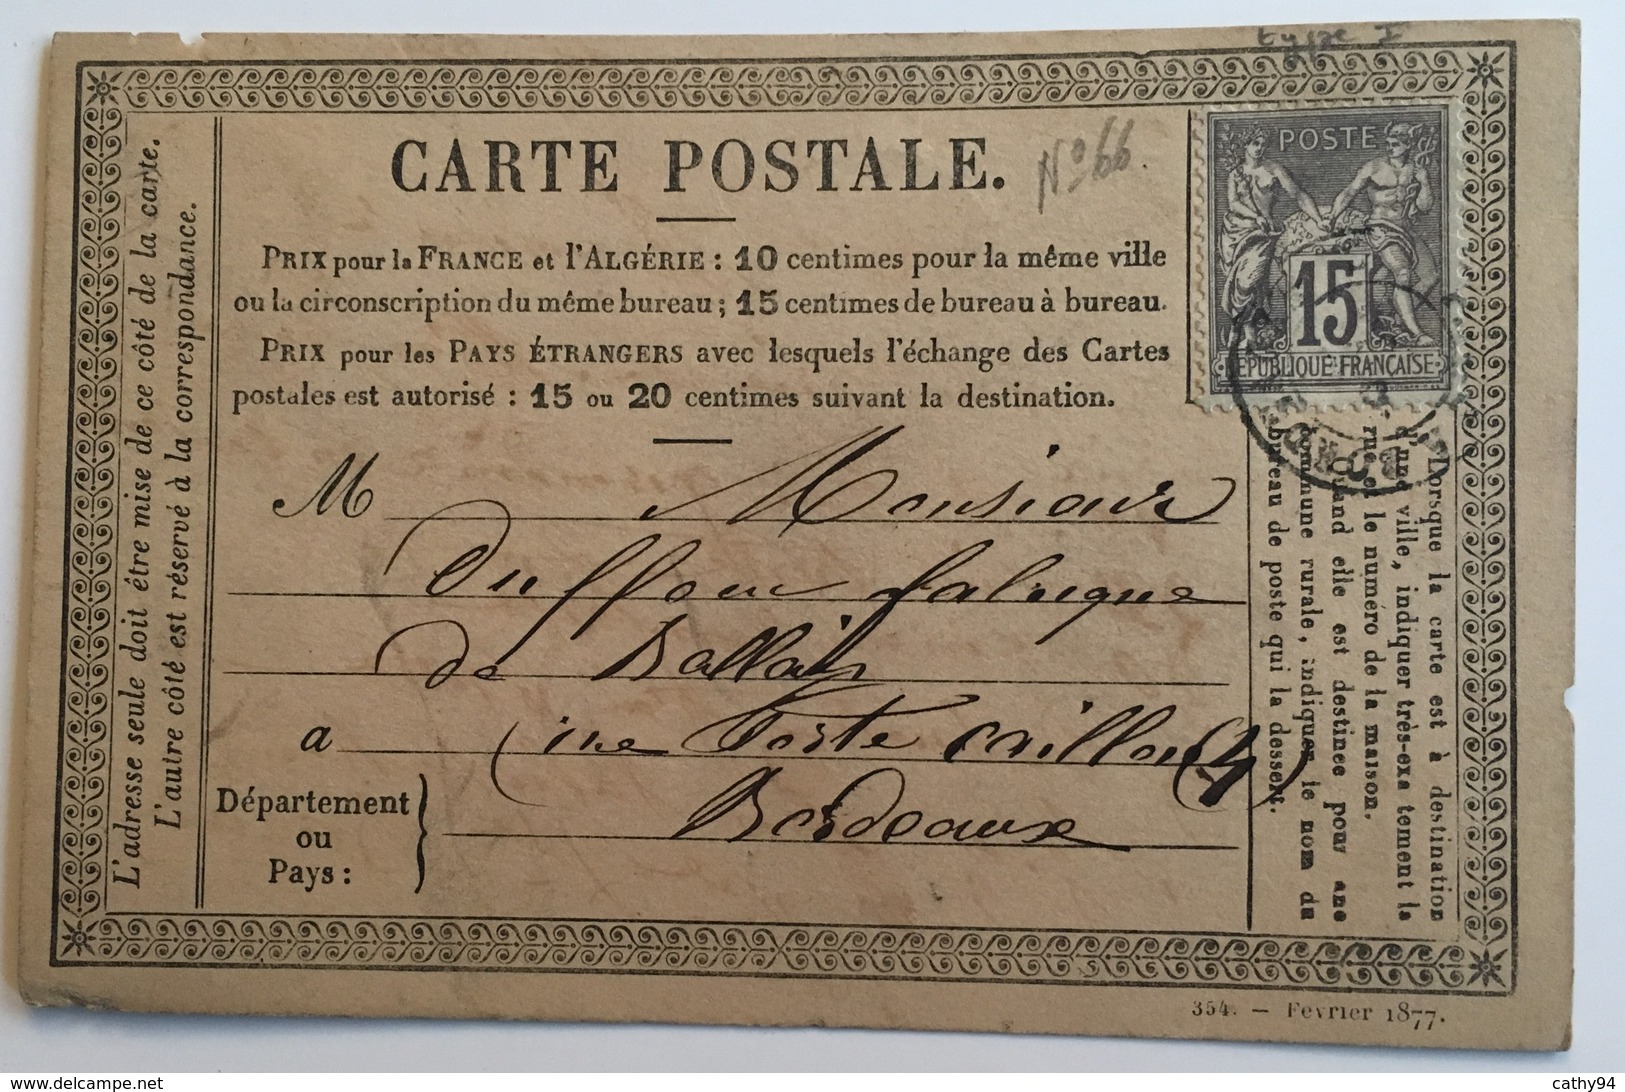 type I
CARTE POSTALE.
No 66.
POSTE
15
REPUBLIQUE FRANÇAISE
PRIX pour la FRANCE et l'ALGÉRIE : 10 centimes pour la même ville
ou la circonscription du même bureau ; 15 centimes de bureau à bureau.
PRIX pour les PAYS ÉTRANGERS avec lesquels l'échange des Cartes
postales est autorisé : 15 ou 20 centimes suivant la destination.
L'adresse seule doit être mise de ce côté de la carte.
L'autre côté est réservé à la correspondance.
M Monsieur
Duffour fabrique
de Ballais
a rue Porte Caillou (4)
Département
ou
Pays :
Bordeaux
Lorsque la carte est à destination
d'une ville, indiquer très-exa tement la
rue et le numéro de la maison.
Quand elle est destinee pour une
commune rurale, indiquer le nom du
bureau de poste qui la dessert.
354. — Fevrier 1877.
cathy94